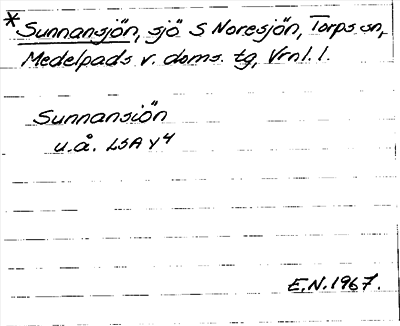 * Sunnansjön, sjö S Noresjön, Torps sn,
Medelpads v. doms. tg, Vrnl. l.
Sunnansiön
u.å. LSA Y4
E.N. 1967.